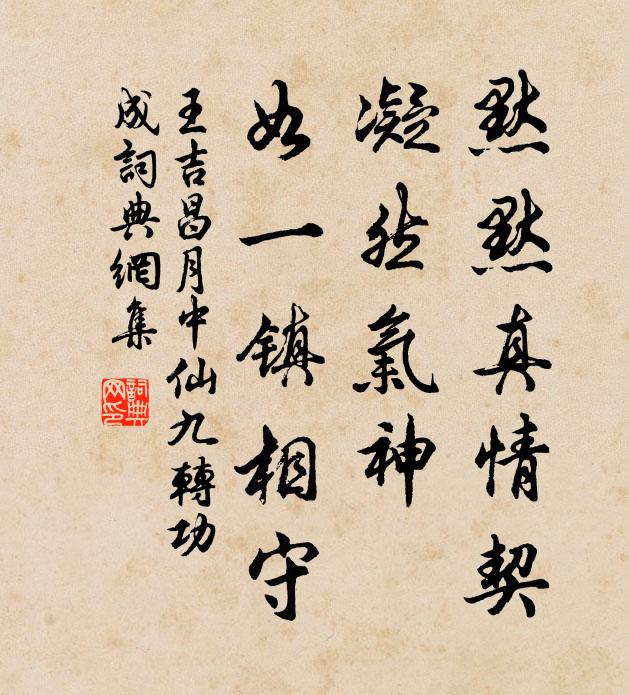 默默真情契
凝然氣神
如一鎮相守
王吉昌月中仙九轉功
成詞典網集
詞典網印